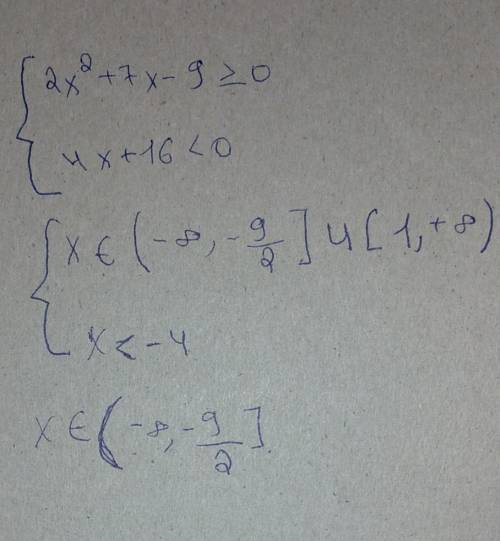 2x² + 7x - 9 ≥ 0
4x + 16 < 0
x ∈ (-∞, -9/2] ∪ [1, +∞)
x < -4
x ∈ (-∞, -9/2]